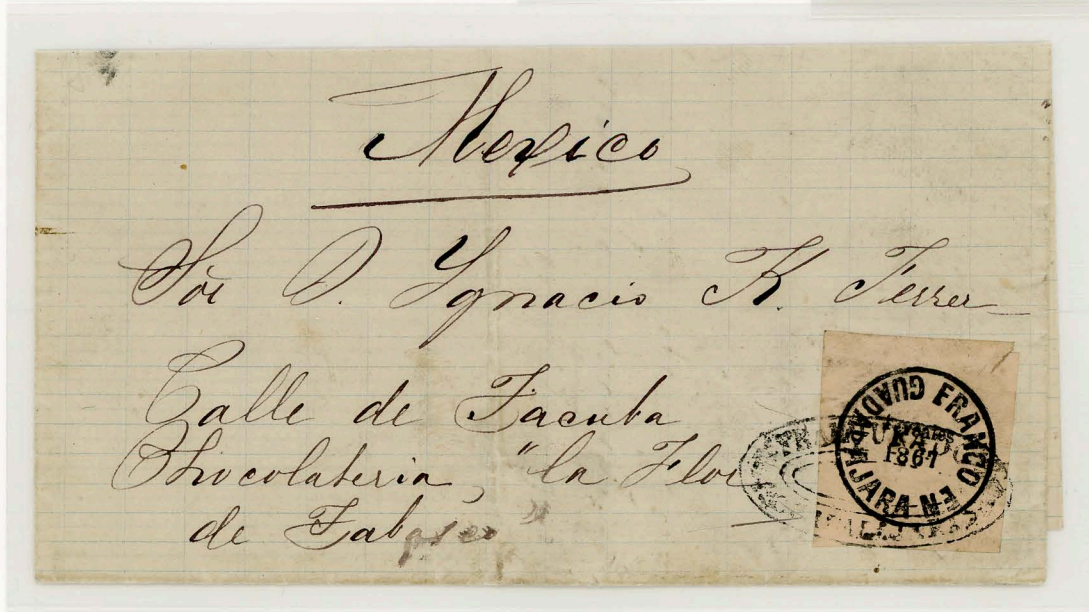 Mexico
Sor D. Ygnacio K. Ferrer
Calle de Tacuba
Chocolateria, "la Flor
de Tabasco"
FRANCO EN GUADALAJARA
1867